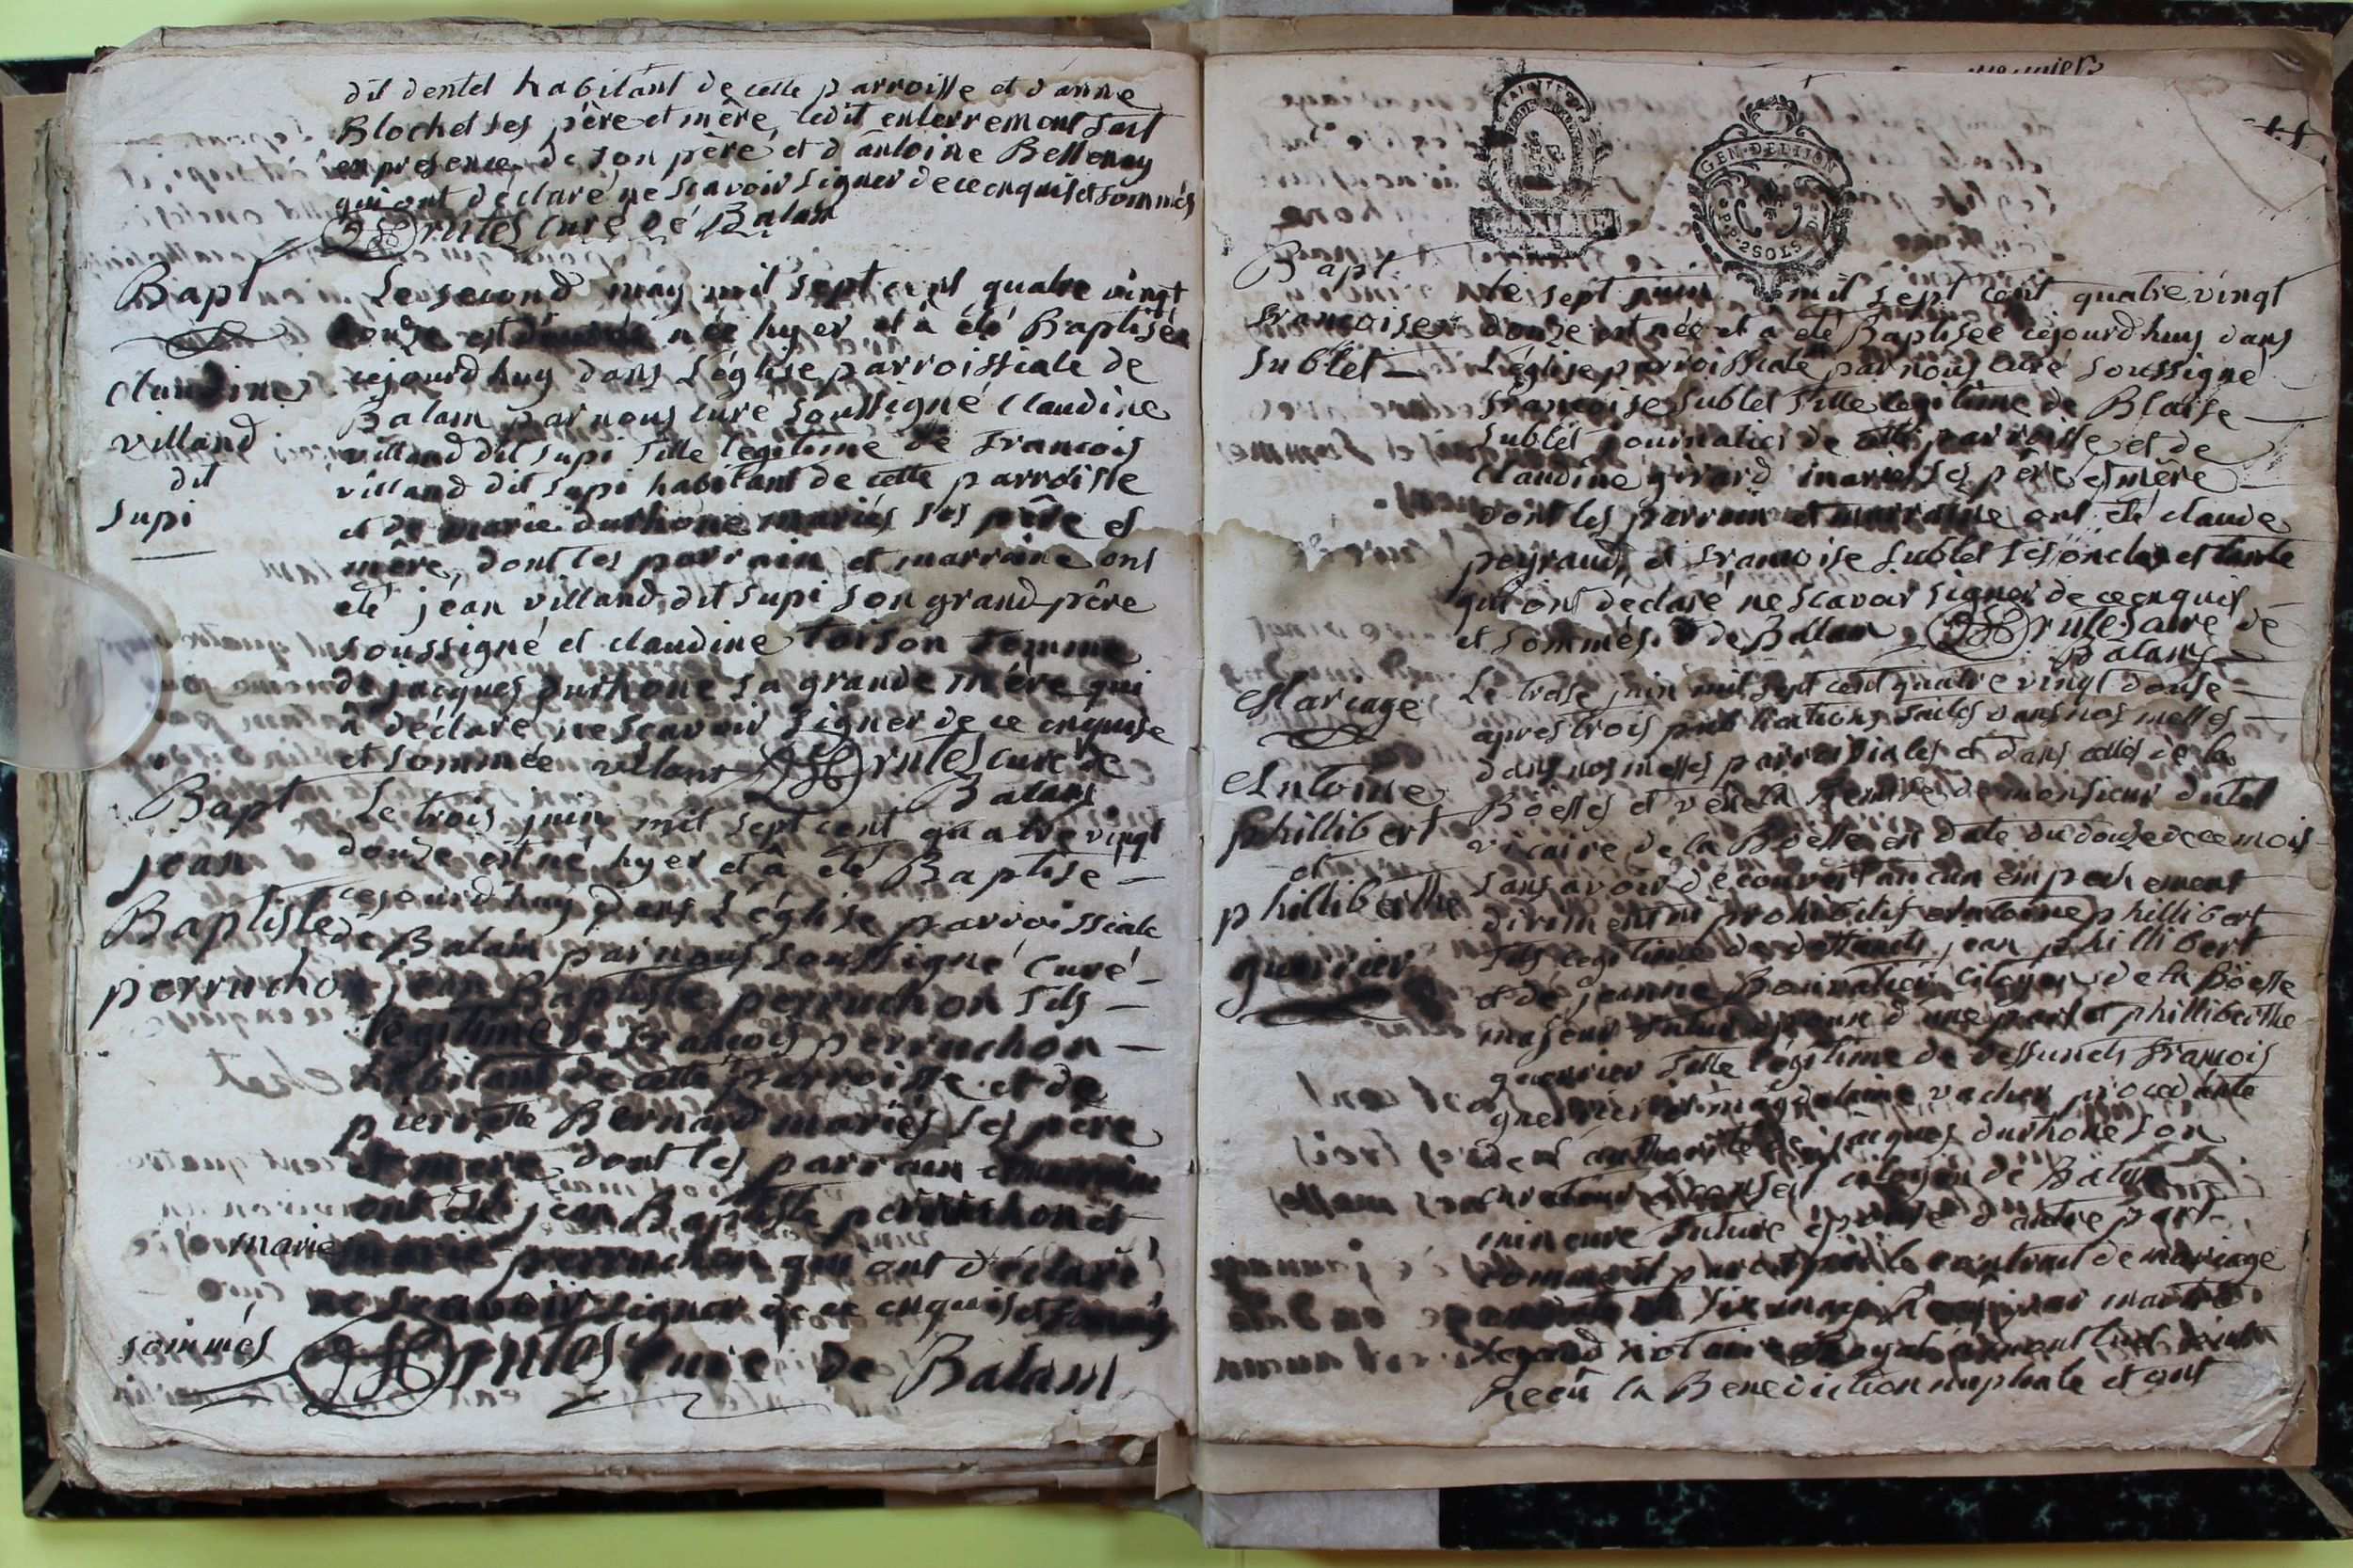 dit dentel habitant de cette parroisse et d'anne
Blochet ses père et mère, ledit enterrement fait
en presence de son père et d'antoine Bellemuy
qui ont déclaré ne scavoir signer de ce enquis et sommés
Drutes curé de Balan
Bapt
claudine
villand
dit
supi
Le second may mil sept cent quatre vingt
douze est née hyer et à été Baptisée
cejourd'huy dans L'église parroissiale de
Balam par nous curé soussigné claudine
villand dit supi fille legitime de François
villand dit supi habitant de cette parroisse
et de marie durhone mariés ses père et
mère, dont les parrain et marraine ont
été jean villand dit supi son grand père
soussigné et claudine toison femme
de jacques durhone sa grande mère qui
à déclaré ne scavoir signer de ce enquise
et sommée villant Drutes curé de
Balam
Bapt
jean
Baptiste
perruchon
Le trois juin mil sept cent quatre vingt
douze est né hyer et à été Baptisé
cejourd'huy dans L'église parroissiale
de Balam par nous soussigné curé
jean Baptiste perruchon fils
légitime de François perruchon
habitant de cette parroisse et de
pierrette Bernard mariés ses père
et mere dont les parrain et marraine
ont été jean Baptiste perruchon et
marie marie perruchon qui ont déclaré
ne scavoir signer de ce enquis et sommés
sommés Drutes curé de Balam
GEN DE DIJON
2 SOLS
Bapt
Françoise
sublet
Le sept juin mil sept cent quatre vingt
douze est née et à été Baptisée cejourd'huy dans
L'église parroissiale par nous curé soussigné
françoise sublet fille legitime de Blaise
sublet journalier de cette parroisse et de
claudine girard mariés ses père et mère
dont les parrain et marraine ont été claude
peyraud et françoise sublet ses oncle et tante
qui ont déclaré ne scavoir signer de ce enquis
et sommés. de Balan Drutes curé de
Balam
Mariage
Antoine
phillibert
et
philliberthe
guerrier
Le trese juin mil sept cent quatre vingt douse
apres trois publications faites dans nos messes
dans nos messes parroissiales et dans celles de la
Böesse et vû la Remise de monsieur dutel
vicaire de la Böesse en date du douze de ce mois
sans avoir découvert aucun empechement
diriment ni prohibitif antoine phillibert
fils legitime de deffuncts jean phillibert
et de jeanne citoyen de la Böesse
majeur futur epoux d'une part et philliberthe
guerrier fille légitime de deffuncts François
guerrier et magdelaine vacher procedante
de l'authorité de jacques durhone son
curateur citoyen de Balan
mineure future epouse d'autre part
comme il paroit par le contrat de mariage
Legrand notaire Royal
Reçu la Benediction nuptiale et ont